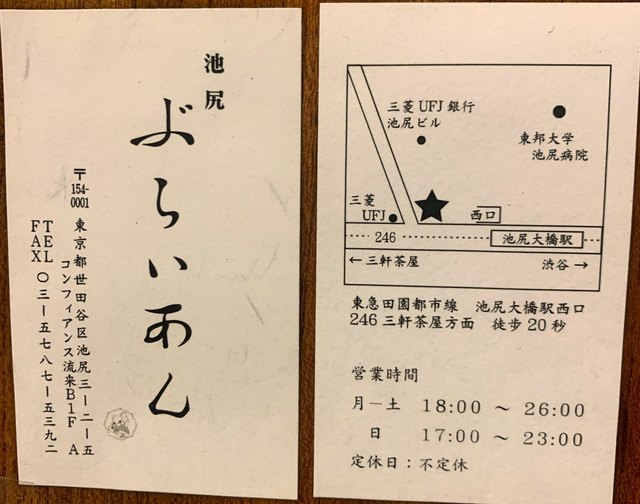 池尻
ぶらいあん
〒154-0001
東京都世田谷区池尻三ー二ー五
コンフィアンス流来B1F A
TEL
FAX 〇三ー五七八七ー五三九二
三菱UFJ銀行
池尻ビル
東邦大学
池尻病院
三菱
UFJ
西口
246
池尻大橋駅
← 三軒茶屋
渋谷 →
東急田園都市線 池尻大橋駅西口
246三軒茶屋方面 徒歩20秒
営業時間
月ー土 18:00 ～ 26:00
日 17:00 ～ 23:00
定休日：不定休